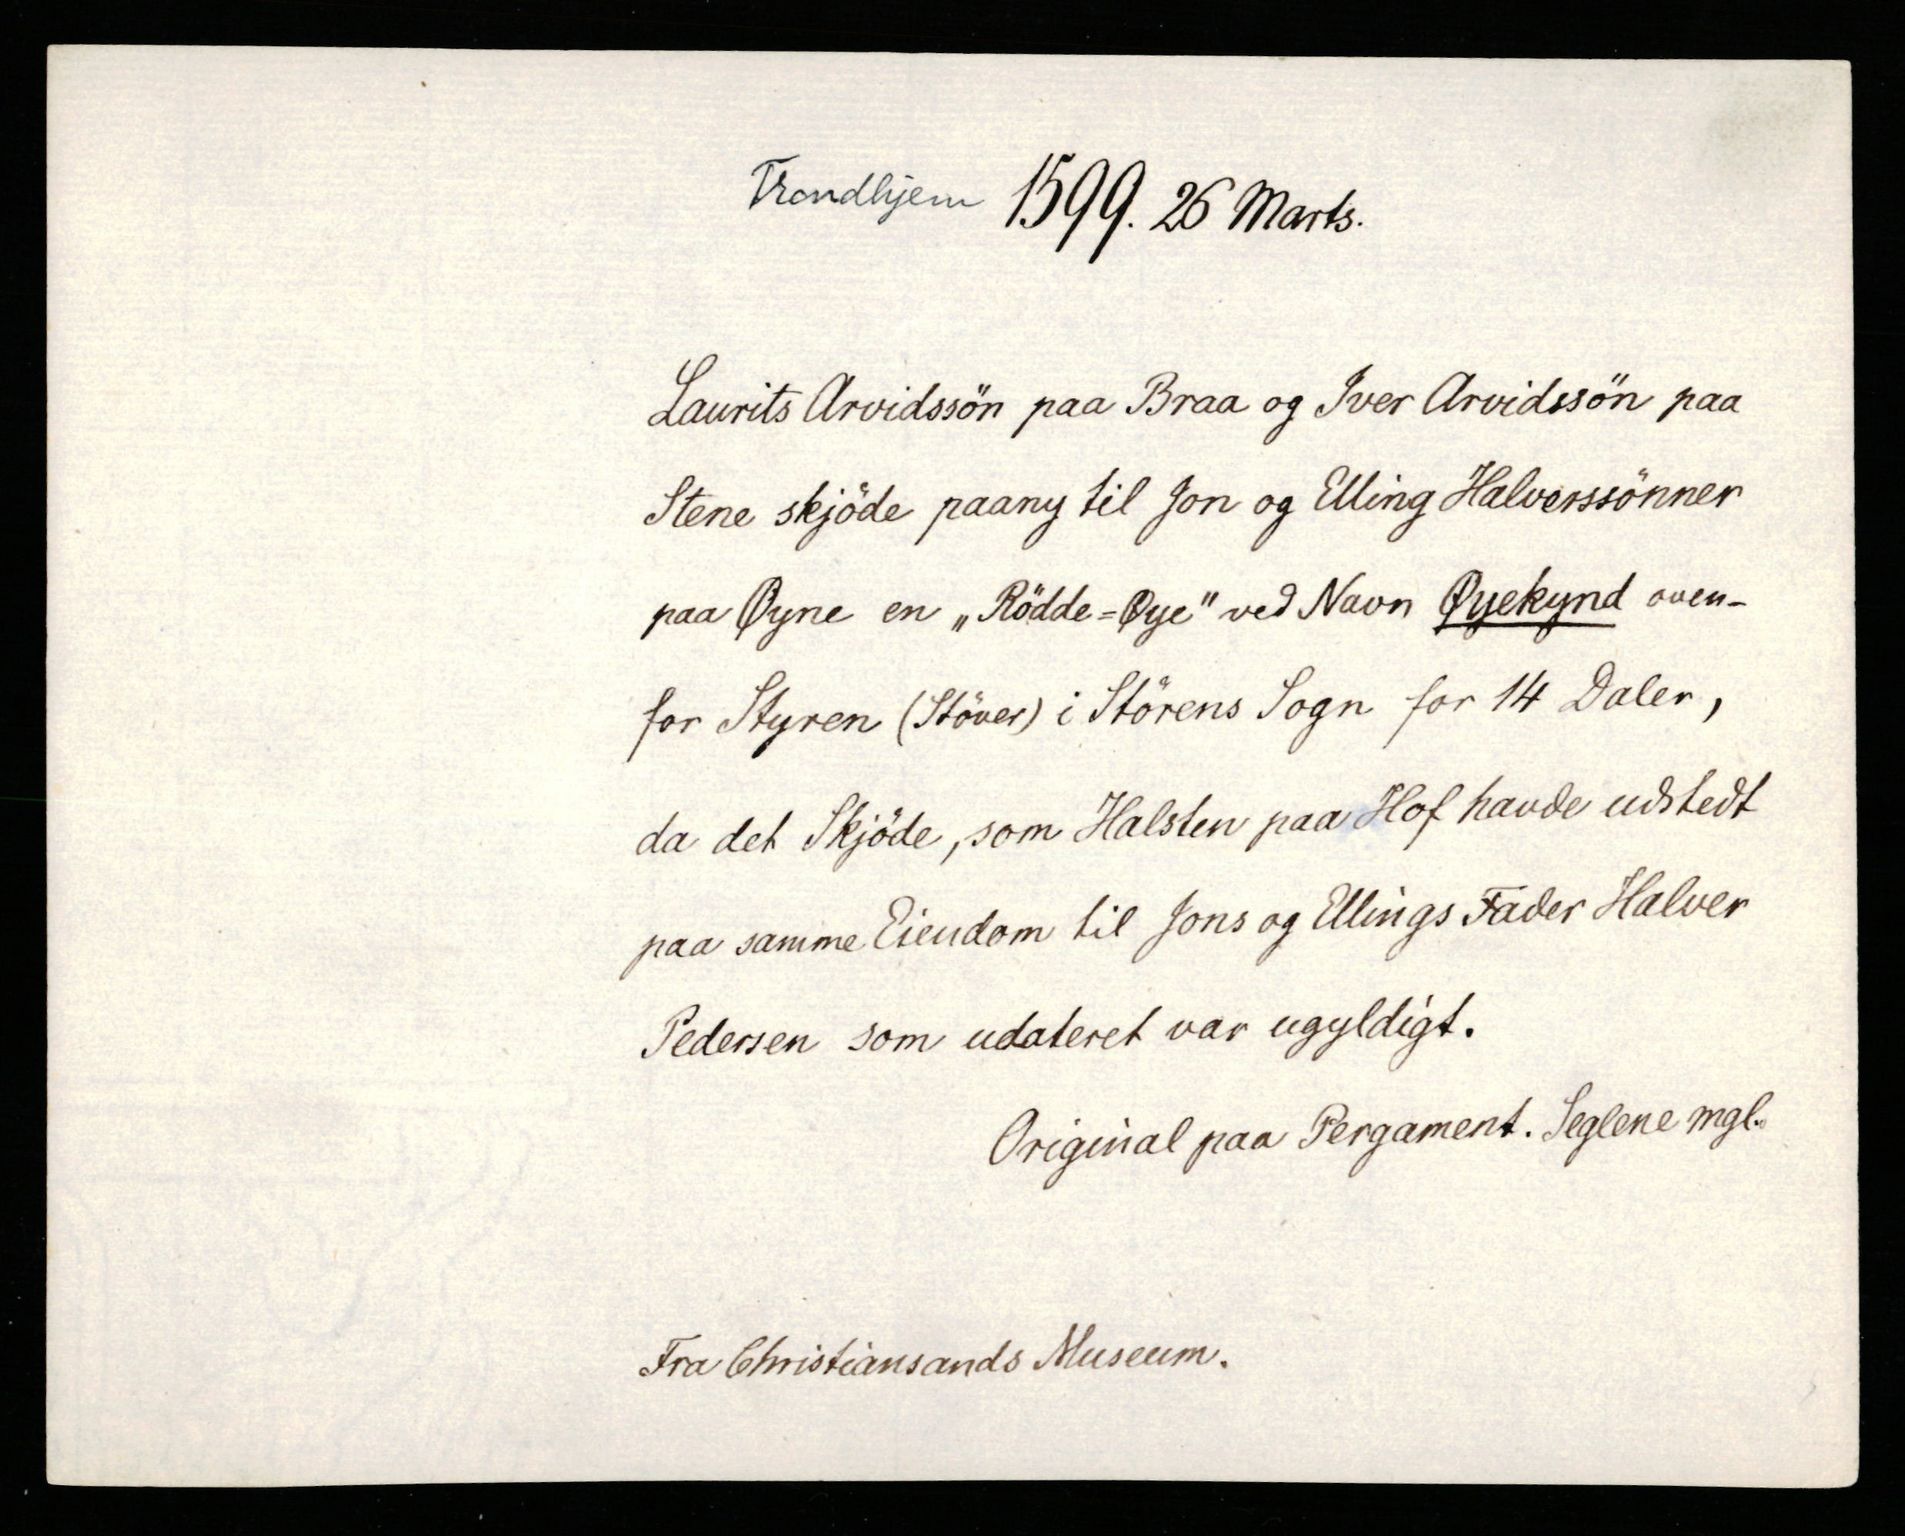 Trondhjem 1599. 26 Marts.
Laurits Arvidssön paa Braa og Iver Arvidssön paa
Stene skjöde paany til Jon og Elling Halverssönner
paa Øyne en „Rödde=Øye" ved Navn Øyekynd oven-
for Styren (Stöver) i Störens Sogn for 14 Daler,
da det Skjöde, som Halsten paa Hof havde udstedt
paa samme Eiendom til Jons og Ellings Fader Halver
Pedersen som udateret var ugyldigt.
Original paa Pergament. Seglene mgl.
Fra Christiansands Museum.